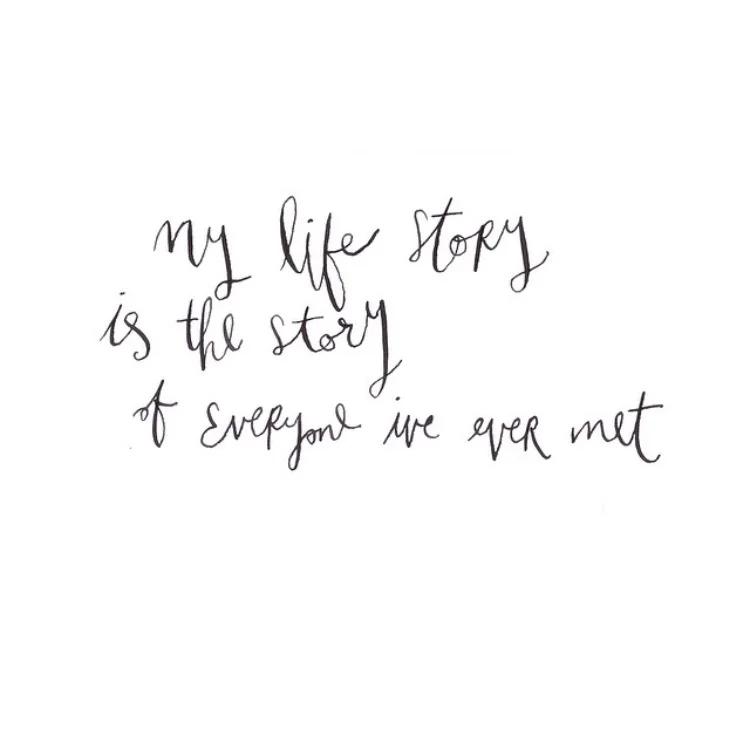 my life story
is the story
of everyone ive ever met